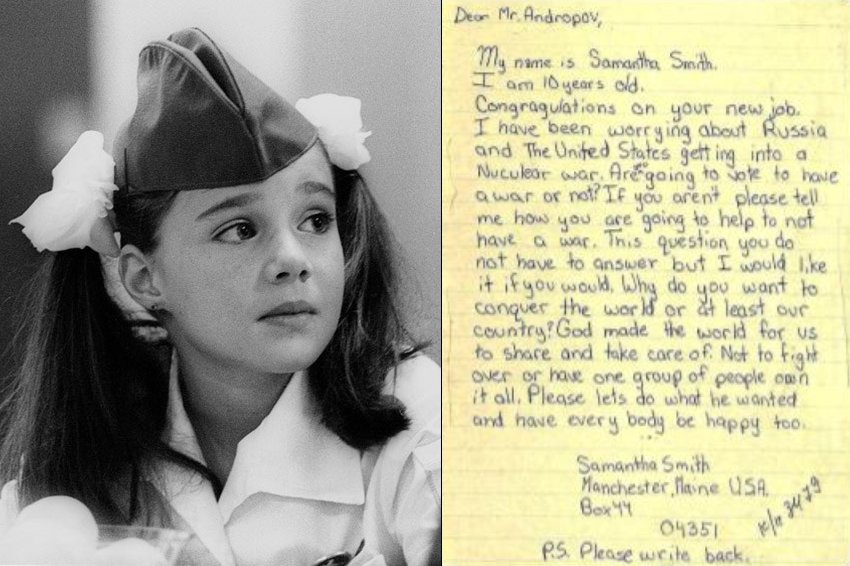 Dear Mr. Andropov,
My name is Samantha Smith.
I am 10 years old.
Congragulations on your new job.
I have been worrying about Russia
and The United States getting into a
Nuculear war. Are you going to vote to have
a war or not? If you aren't please tell
me how you are going to help to not
have a war. This question you do
not have to answer but I would like
it if you would. Why do you want to
conquer the world or at least our
country? God made the world for us
to share and take care of. Not to fight
over or have one group of people own
it all. Please lets do what he wanted
and have every body be happy too.
Samantha Smith
Manchester, Maine USA.
Box 44
04351
3479
P.S. Please write back.